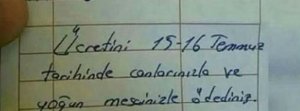 Ücretini 15-16 Temmuz
tarihinde canlarınızla ve
yoğun mesainizle ödediniz.